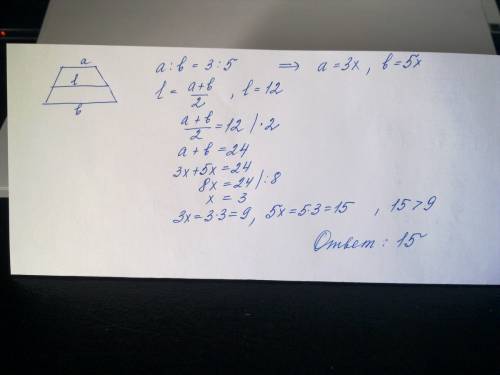 a
l
b
a : b = 3 : 5 ⇒ a = 3x , b = 5x
l = (a+b)/2 , l = 12
(a+b)/2 = 12 /·2
a + b = 24
3x + 5x = 24
8x = 24 /:8
x = 3
3x = 3·3 = 9, 5x = 5·3 = 15 , 15 > 9
Ответ: 15